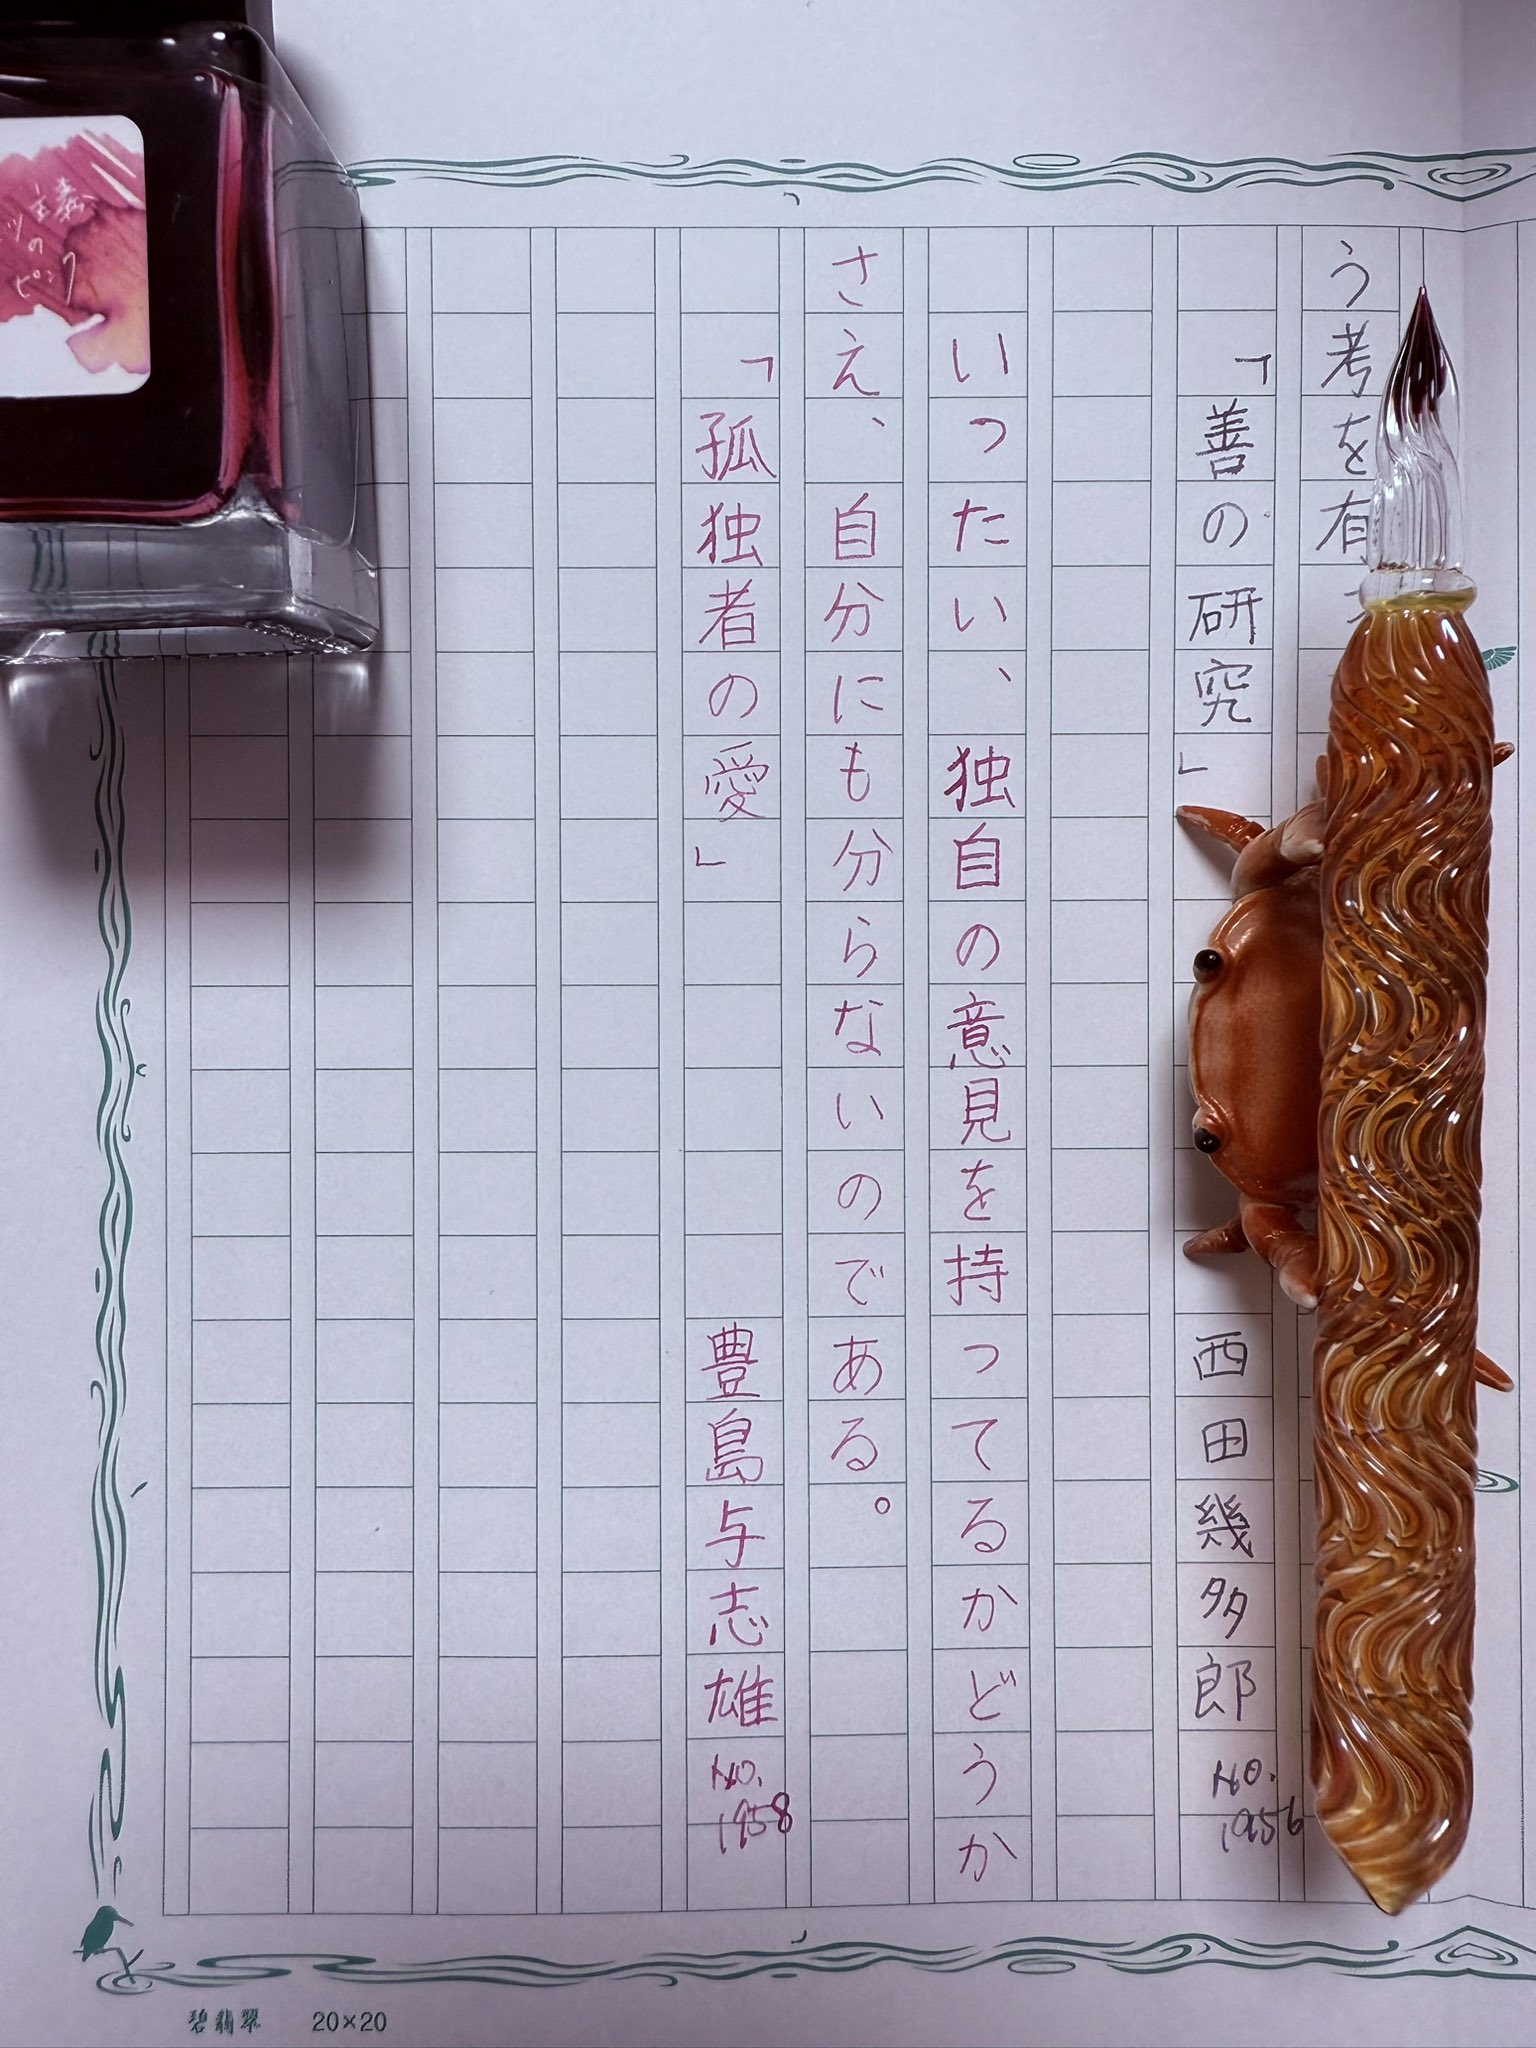 う考を有
「善の研究」 西田幾多郎 No. 1956
いったい、独自の意見を持ってるかどうか
さえ、自分にも分らないのである。
「孤独者の愛」 豊島与志雄 No. 1958
主義
の
ピンク
碧翡翠 20×20